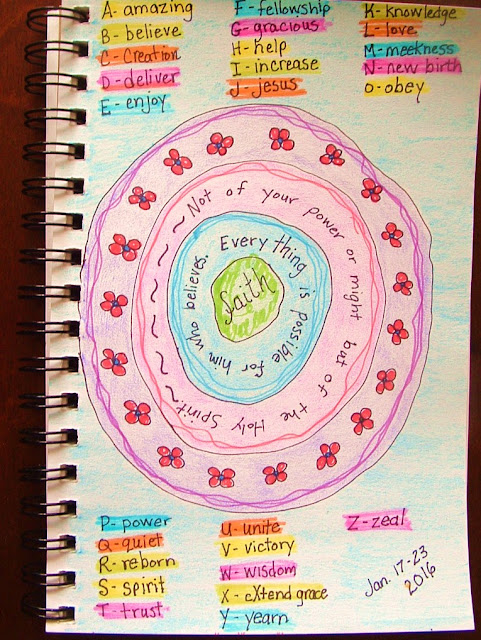 A- amazing
B- believe
C- Creation
D- deliver
E- enjoy
F- fellowship
G- gracious
H- help
I- increase
J- jesus
K- knowledge
L- love
M- meekness
N- new birth
O- obey
Not of your power or might but of the Holy Spirit
Every thing is possible for him who believes.
faith
P- power
Q- quiet
R- reborn
S- spirit
T- trust
U- unite
V- victory
W- wisdom
X- eXtend grace
Y- yearn
Z- zeal
Jan. 17-23
2016